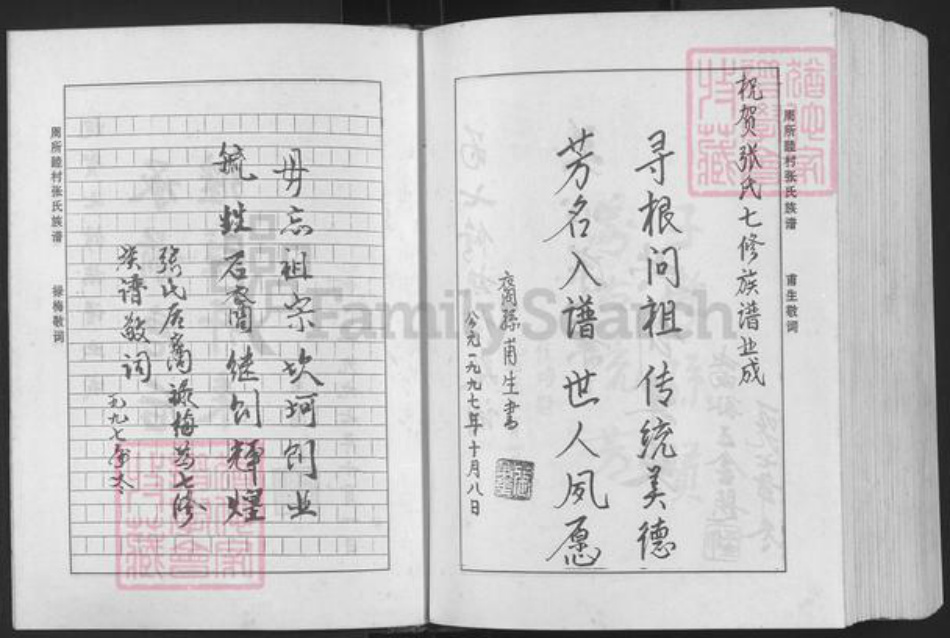 周所睦村张氏族谱
甫生敬词
祝贺张氏七修族谱业成
寻根问祖传统美德
芳名入谱世人夙愿
裔孙甫生书
公元一九九七年十月八日
毋忘祖宗坎坷创业
毓甡后裔继创辉煌
张氏后裔禄梅为七修
族谱敬词
九九七年冬
周所睦村张氏族谱
禄梅敬词
FamilySearch